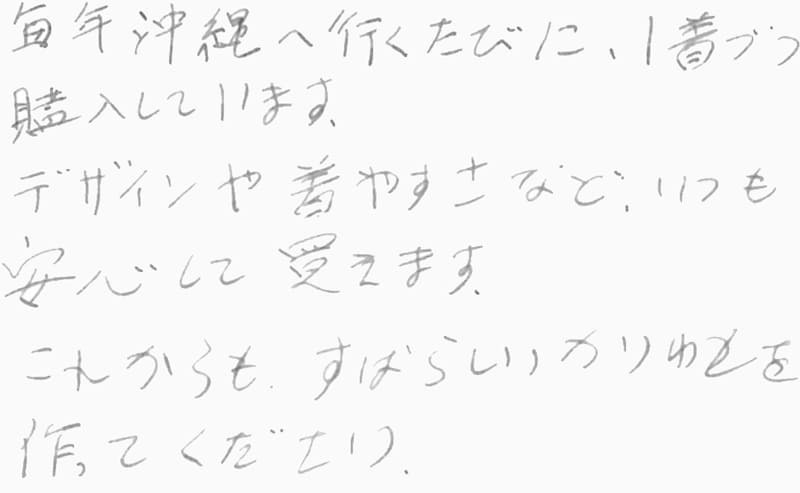 毎年沖縄へ行くたびに、1着づつ
購入しています。
デザインや着やすさなど、いつも
安心して買えます。
これからも、すばらしいかりゆしを
作ってください。